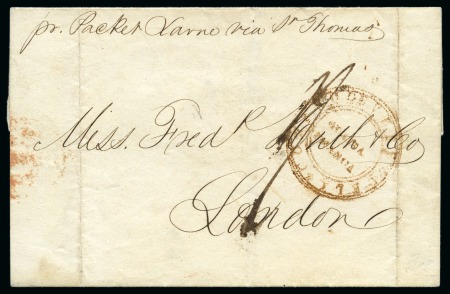 pr. Packet Larne via St Thomas
Miss. Fredk. Huth & Co
London